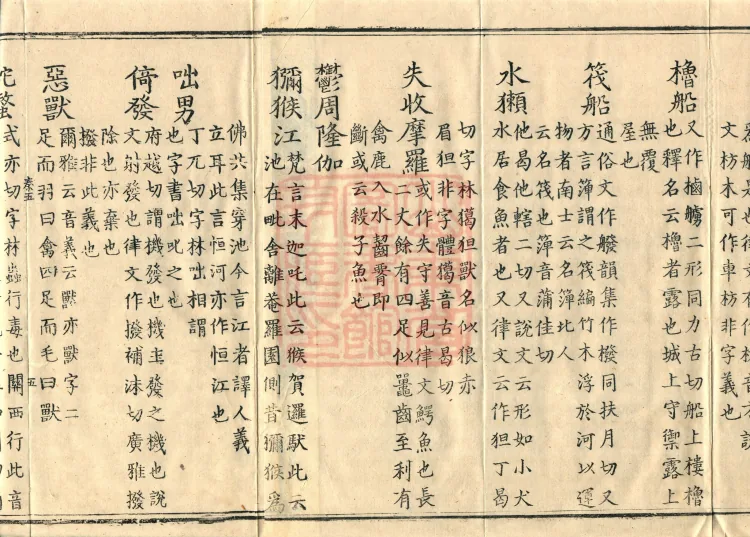 文枋木可作車枋非字義也
櫓船
又作樐艣二形同力古切船上樓櫓
也釋名云櫓者露也城上守禦露上
無覆
屋也
筏船
通俗文作䑔韻集作橃同扶月切又
方言簰謂之筏編竹木浮於河以運
物者南土云名簰北人
云名筏也簰音蒲佳切
水獺
他曷他轄二切又說文云形如小犬
水居食魚者也又律文云作狚丁曷
切字林獦狚獸名似狼赤
眉狚非字體獦音古曷切
失收摩羅
或作失守善見律文鰐魚也長
二丈餘有四足似鼉齒至利有
禽鹿入水齧臋即
斷或云殺子魚也
鬱周隆伽
獼猴江
梵言末迦吒此云猴賀邏馱此云
池在毗舍離菴羅園側昔獼猴為
佛共集穿池今言江者譯人義
立耳此言恒河亦作恒江也
咄男
丁兀切字林咄相謂
也字書咄叱之也
偫發
府越切謂機發也機主發之機也說
文射發也律文作撥補沫切廣雅撥
除也亦棄也
撥非此義也
惡獸
爾雅云音義云獸亦獸字二
足而羽曰禽四足而毛曰獸
卷五
五
蛇螫
式亦切字林蟲行毒也關西行此音